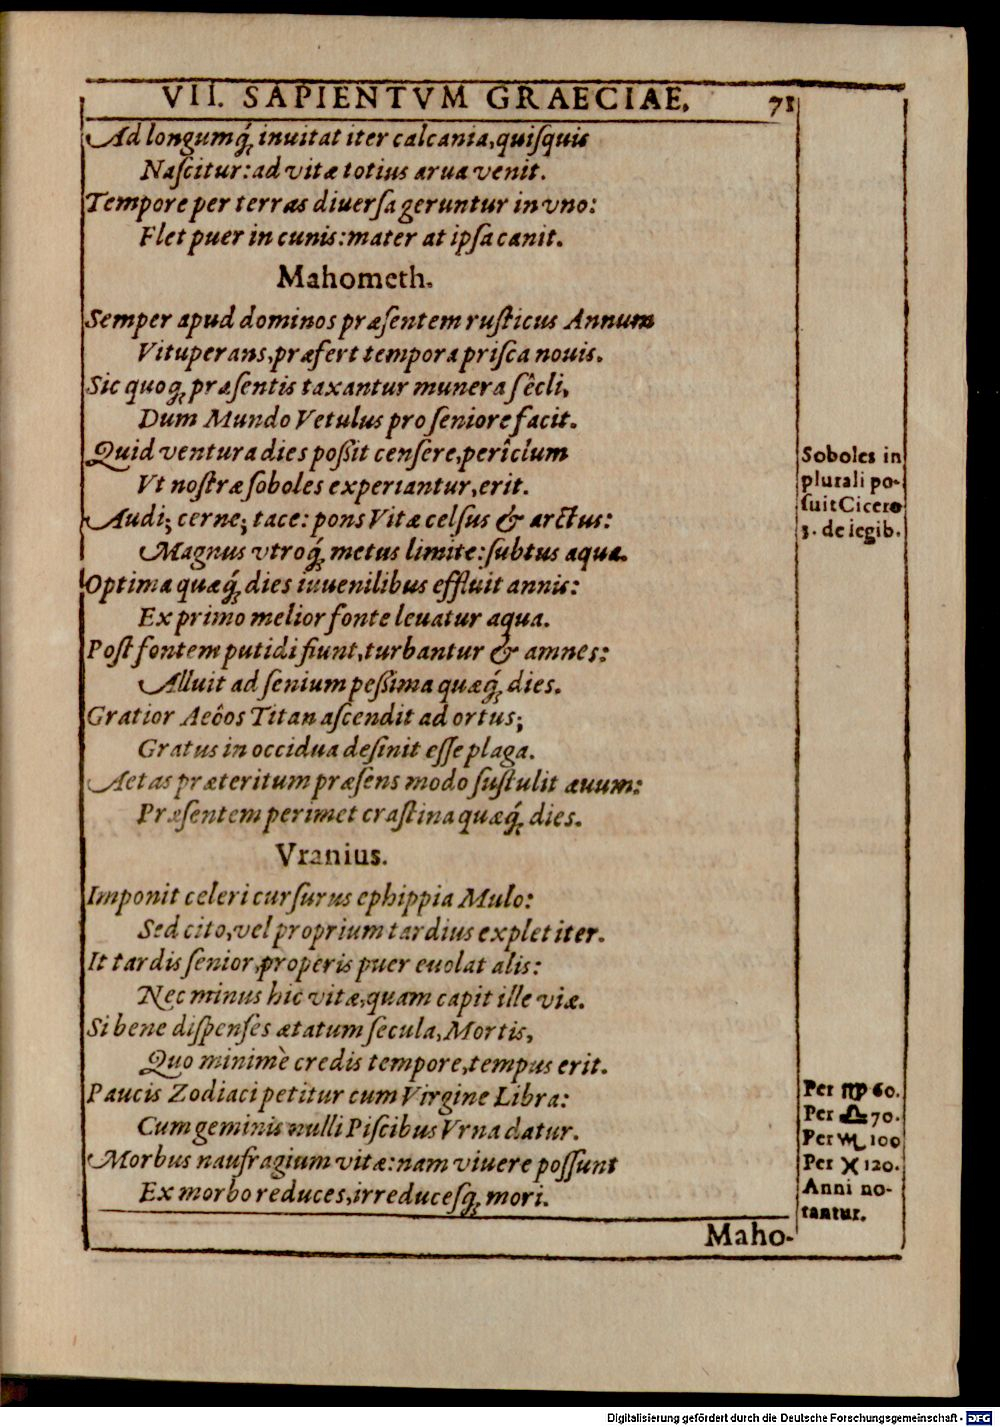 VII. SAPIENTVM GRAECIAE. 71
Ad longumq́; inuitat iter calcania, quiſquis
Naſcitur: ad vitæ totius arua venit.
Tempore per terras diuerſa geruntur in vno:
Flet puer in cunis: mater at ipſa canit.
Mahometh.
Semper apud dominos præſentem ruſticus Annum
Vituperans, præfert tempora priſca nouis.
Sic quoq; præſentis taxantur munera ſêcli,
Dum Mundo Vetulus pro ſeniore facit.
Quid ventura dies poßit cenſere, perîclum
Vt noſtræ ſoboles experiantur, erit.
Audi; cerne; tace: pons Vitæ celſus & arctus:
Magnus vtroq́; metus limite: ſubtus aqua.
Optima quæq́; dies iuuenilibus effluit annis:
Ex primo melior fonte leuatur aqua.
Poſt fontem putidi fiunt, turbantur & amnes:
Alluit ad ſenium peßima quæq́; dies.
Gratior Aeôos Titan aſcendit ad ortus;
Gratus in occidua deſinit eſſe plaga.
Aetas præteritum præſens modo ſuſtulit æuum:
Præſentem perimet craſtina quæq́; dies.
Vranius.
Imponit celeri curſurus ephippia Mulo:
Sed cito, vel proprium tardius explet iter.
It tardis ſenior, properis puer euolat alis:
Nec minus hic vitæ, quam capit ille viæ.
Si bene diſpenſes ætatum ſecula, Mortis,
Quo minimè credis tempore, tempus erit.
Paucis Zodiaci petitur cum Virgine Libra:
Cum geminis nulli Piſcibus Vrna datur.
Morbus naufragium vitæ: nam viuere poſſunt
Ex morbo reduces, irreduceſq; mori.
Maho-
Soboles in
plurali po-
ſuit Cicero
3. de legib.
Per ♍ 60.
Per ♎ 70.
Per ♏ 100
Per ♓ 120.
Anni no-
tantur.
Digitalisierung gefördert durch die Deutsche Forschungsgemeinschaft - DFG